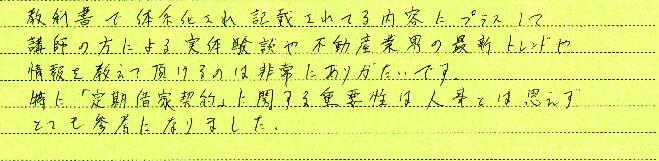 教科書で体系化され記載されてる内容にプラスして
講師の方による実体験談や不動産業界の最新トレンドや
情報を教えて頂けるのは非常にありがたいです。
特に「定期借家契約」に関する重要性は人事とは思えず
とても参考になりました。